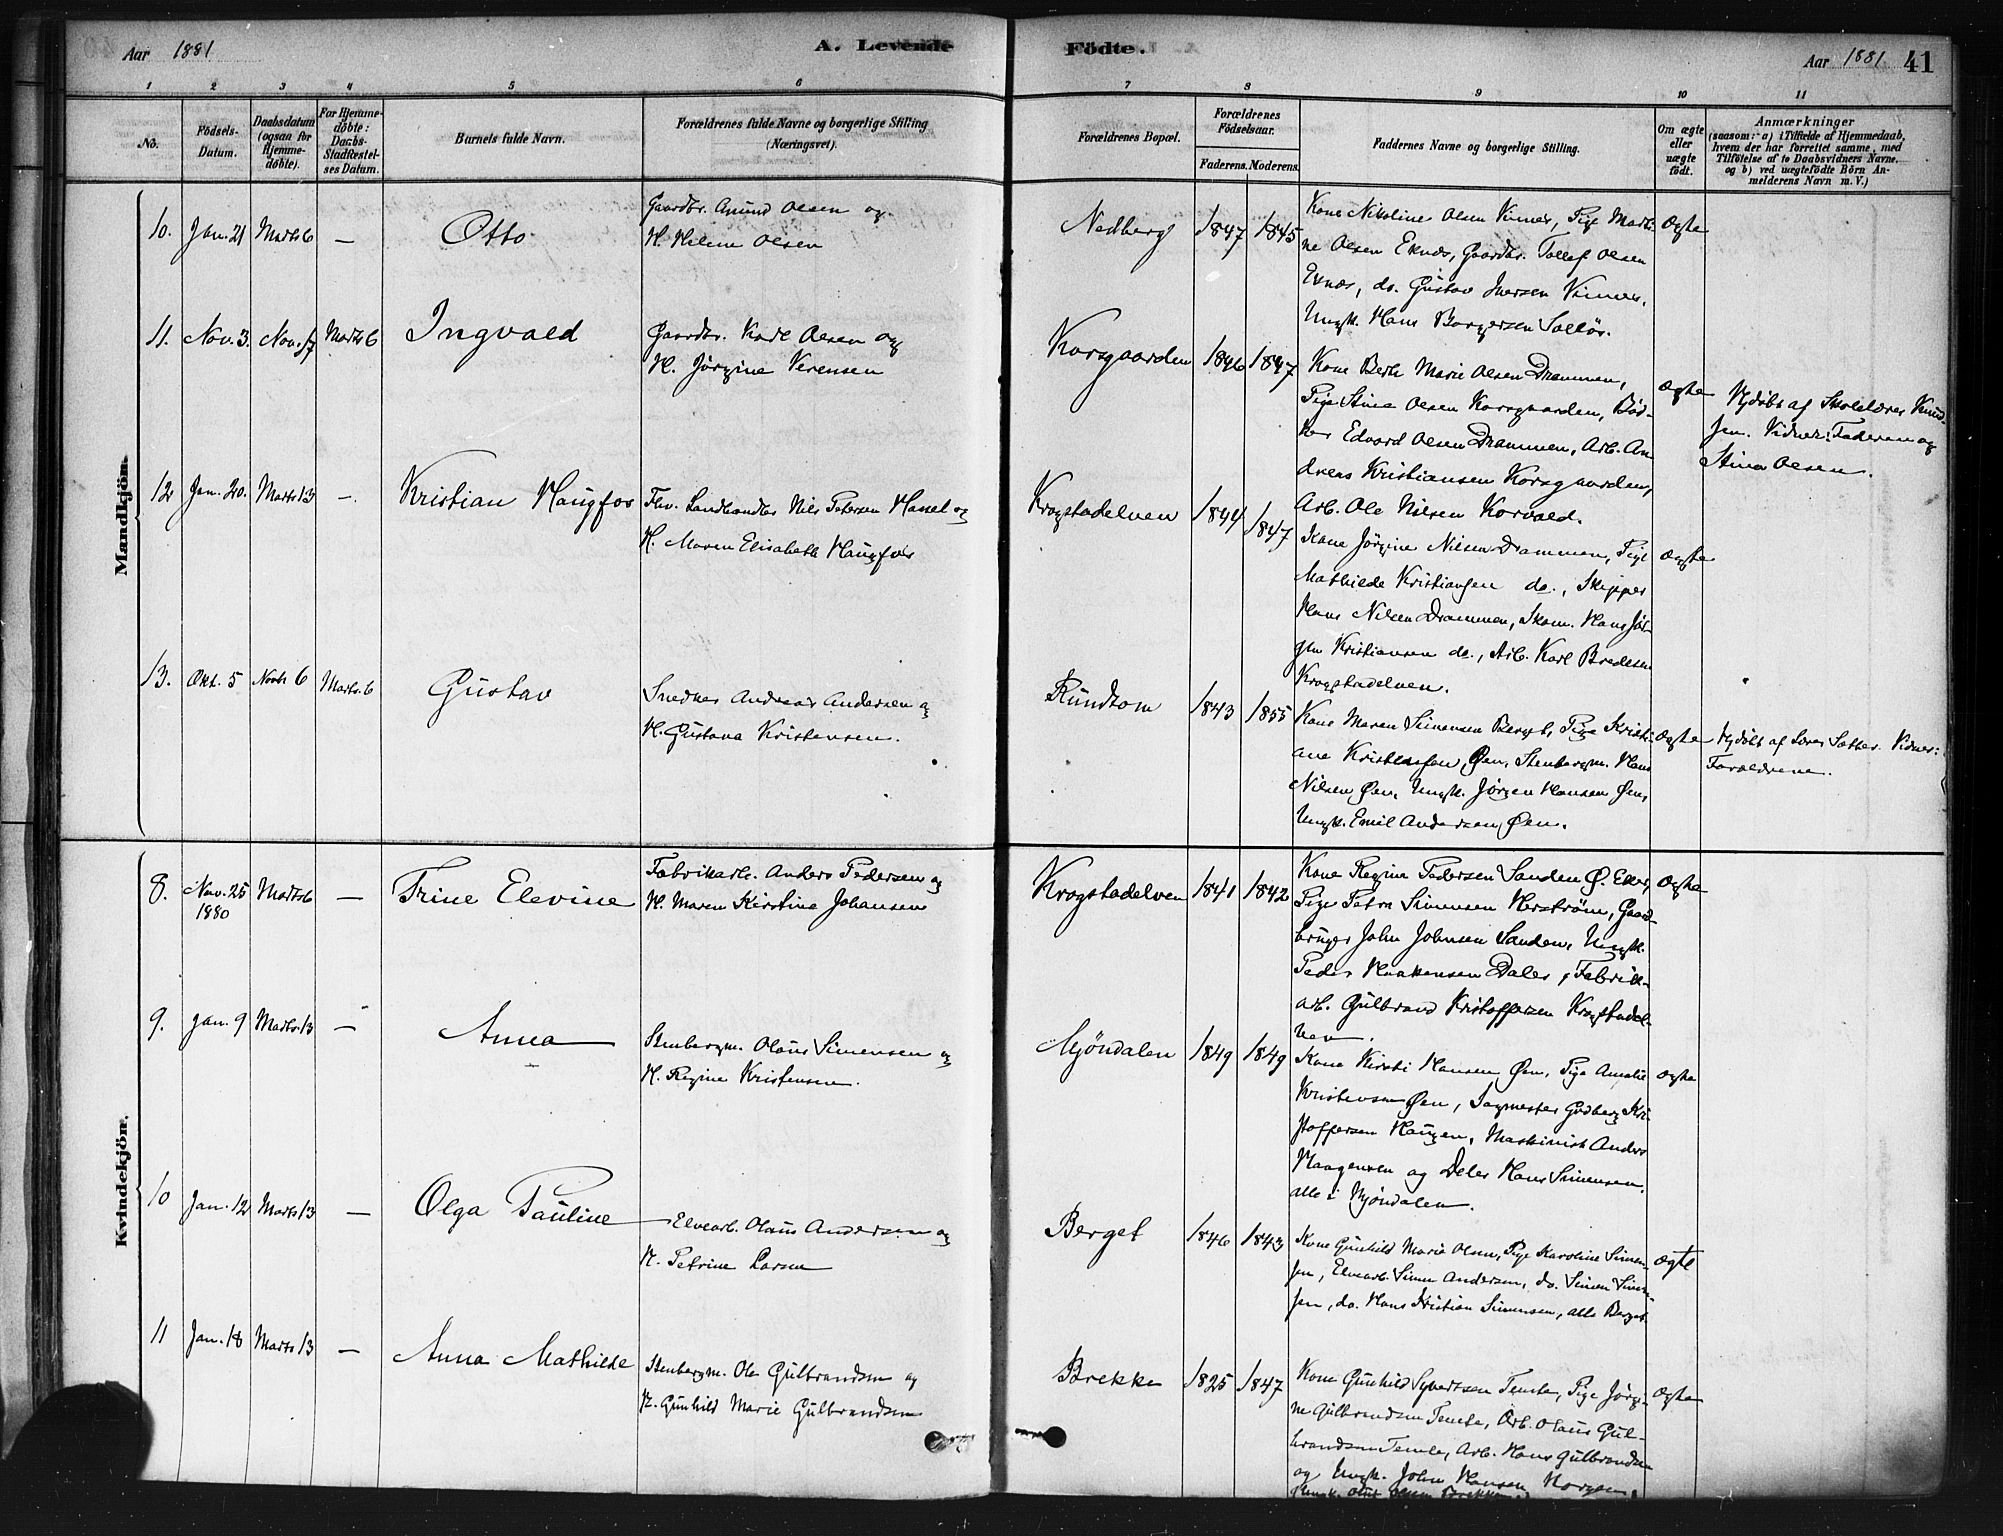 Aar 1881
A. Levende Födte.
Aar 1881 41
1 2 3 4 5 6 7 8 9 10 11
No.
Födsels-
Datum.
Daabsdatum
(ogsaa for
Hjemme-
döbte).
For Hjemme-
döbte:
Daabs-
Stadfæstel-
ses Datum.
Barnets fulde Navn.
Forældrenes fulde Navne og borgerlige Stilling
(Næringsvei).
Forældrenes Bopæl.
Forældrenes
Födselsaar.
Faderens. Moderens.
Faddernes Navne og borgerlige Stilling.
Om ægte
eller
uægte
födt.
Anmærkninger
(saasom: a) i Tilfælde af Hjemmedaab,
hvem der har forrettet samme, med
Tilföielse af to Daabsvidners Navne.
og b) ved uægtefödte Börn An-
melderens Navn m. V.)
Mandkjön.
10. Jan. 21 Marts 6 — Otto
Gaardbr. Amund Olsen og
H. Helene Olsen
Nedberg 1847 1845
Kone Nikoline Olsen Vinnes, Pige Marti-
ne Olsen Eknes, Gaardbr. Tollef Olsen
Eknes, do. Gustav Iversen Vinnes,
Ungk. Hans Borgersen Solløs.
Ægte
11. Nov. 3. Nov. 17 Marts 6 Ingvald
Gaardbr. Karl Olsen og
H. Jørgine Verensen
Korsgaarden 1846 1847
Kone Berte Marie Olsen Drammen,
Pige Stina Olsen Korsgaarden, Bød-
ker Edvard Olsen Drammen, Arb. An-
dreas Kristiansen Korsgaarden,
Arb. Ole Nilsen Korvald.
Ægte
Hjdøbt af Skolelærer Knud-
sen. Vidner: Faderen og
Stina Olsen.
12 Jan. 20. Marts 13 — Kristian Haugfos
Fhv. Landhandler Nils Petersen Hassel og
H. Maren Elisabeth Haugfos
Krogstadelven 1844 1847
Kone Jørgine Nilsen Drammen, Pige
Mathilde Kristiansen do., Skipper
Hans Nilsen Drammen, Skom. Hans Jør-
gen Kristiansen do., Arb. Karl Bredesen
Krogstadelven.
Ægte
13. Okt. 5 Novbr 6 Marts. 6 Gustav
Snedker Andreas Andersen og
H. Gustava Kristensen.
Rundtom 1843 1855
Kone Maren Simensen Berget, Pige Kristi-
ane Kristensen, Øen, Stenbergm. Hans
Nilsen Øen, Ungk. Jørgen Hansen Øen,
Ungk. Emil Andersen, Øen.
Ægte
Hjdøbt af Lærer Sætter. Vidner:
Forældrene.
Kvindekjön.
8. Nov. 25 1880 Marts 6 — Trine Elevine
Fabrikarb. Anders Pedersen og
H. Maren Kirstine Johansen
Krogstadelven 1841 1842
Kone Regine Pedersen Sanden Ø. Eker,
Pige Petra Simensen Herstrøm, Gaard-
bruger John Johnsen Sanden, Ungk.
Peder Haakensen Daler, Fabrik-
arb. Gulbrand Kristoffersen Krogstadel-
ven.
Ægte
9. Jan. 9 Marts 13 — Anna
Stenbergm. Olaus Simensen og
H. Regine Kristensen.
Mjöndalen 1849 1849
Kone Kirsti Hansen Øen, Pige Amalie
Kristensen Øen, Sagmester Gudberg Kri-
stoffersen Haugen, Maskinist Anders
Haagensen og Deler Hans Simensen,
alle i Mjöndalen.
Ægte
10 Jan. 12 Marts 13 — Olga Pauline
Elvearb. Olaus Andersen og
H. Petrine Larsen
Berget 1846 1843
Kone Gunhild Marie Olsen, Pige Karoline Simen-
sen, Elvearb. Simen Andersen, do. Simen Simen-
sen, do. Hans Kristian Simensen, alle Berget.
Ægte
11 Jan. 18 Marts 13 — Anna Mathilde
Stenbergm. Ole Gulbrandsen og
H. Gunhild Marie Gulbrandsen
Brekke 1825 1847
Kone Gunhild Syvertsen Temte, Pige Jørgi-
ne Gulbrandsen Temte, Arb. Olaus Gul-
brandsen Temte, Arb. Hans Gulbrandsen
og Ungk. John Hansen
Ægte